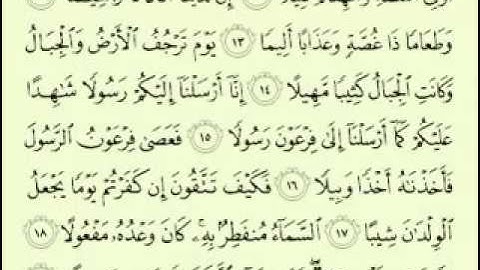 وَطَعَامًا ذَا غُصَّةٍ وَعَذَابًا أَلِيمًا ١٣ يَوْمَ تَرْجُفُ ٱلْأَرْضُ وَٱلْجِبَالُ
وَكَانَتِ ٱلْجِبَالُ كَثِيبًا مَّهِيلًا ١٤ إِنَّآ أَرْسَلْنَآ إِلَيْكُمْ رَسُولًا شَٰهِدًا
عَلَيْكُمْ كَمَآ أَرْسَلْنَآ إِلَىٰ فِرْعَوْنَ رَسُولًا ١٥ فَعَصَىٰ فِرْعَوْنُ ٱلرَّسُولَ
فَأَخَذْنَٰهُ أَخْذًا وَبِيلًا ١٦ فَكَيْفَ تَتَّقُونَ إِن كَفَرْتُمْ يَوْمًا يَجْعَلُ
ٱلْوِلْدَٰنَ شِيبًا ١٧ ٱلسَّمَآءُ مُنفَطِرٌۢ بِهِۦۚ كَانَ وَعْدُهُۥ مَفْعُولًا ١٨